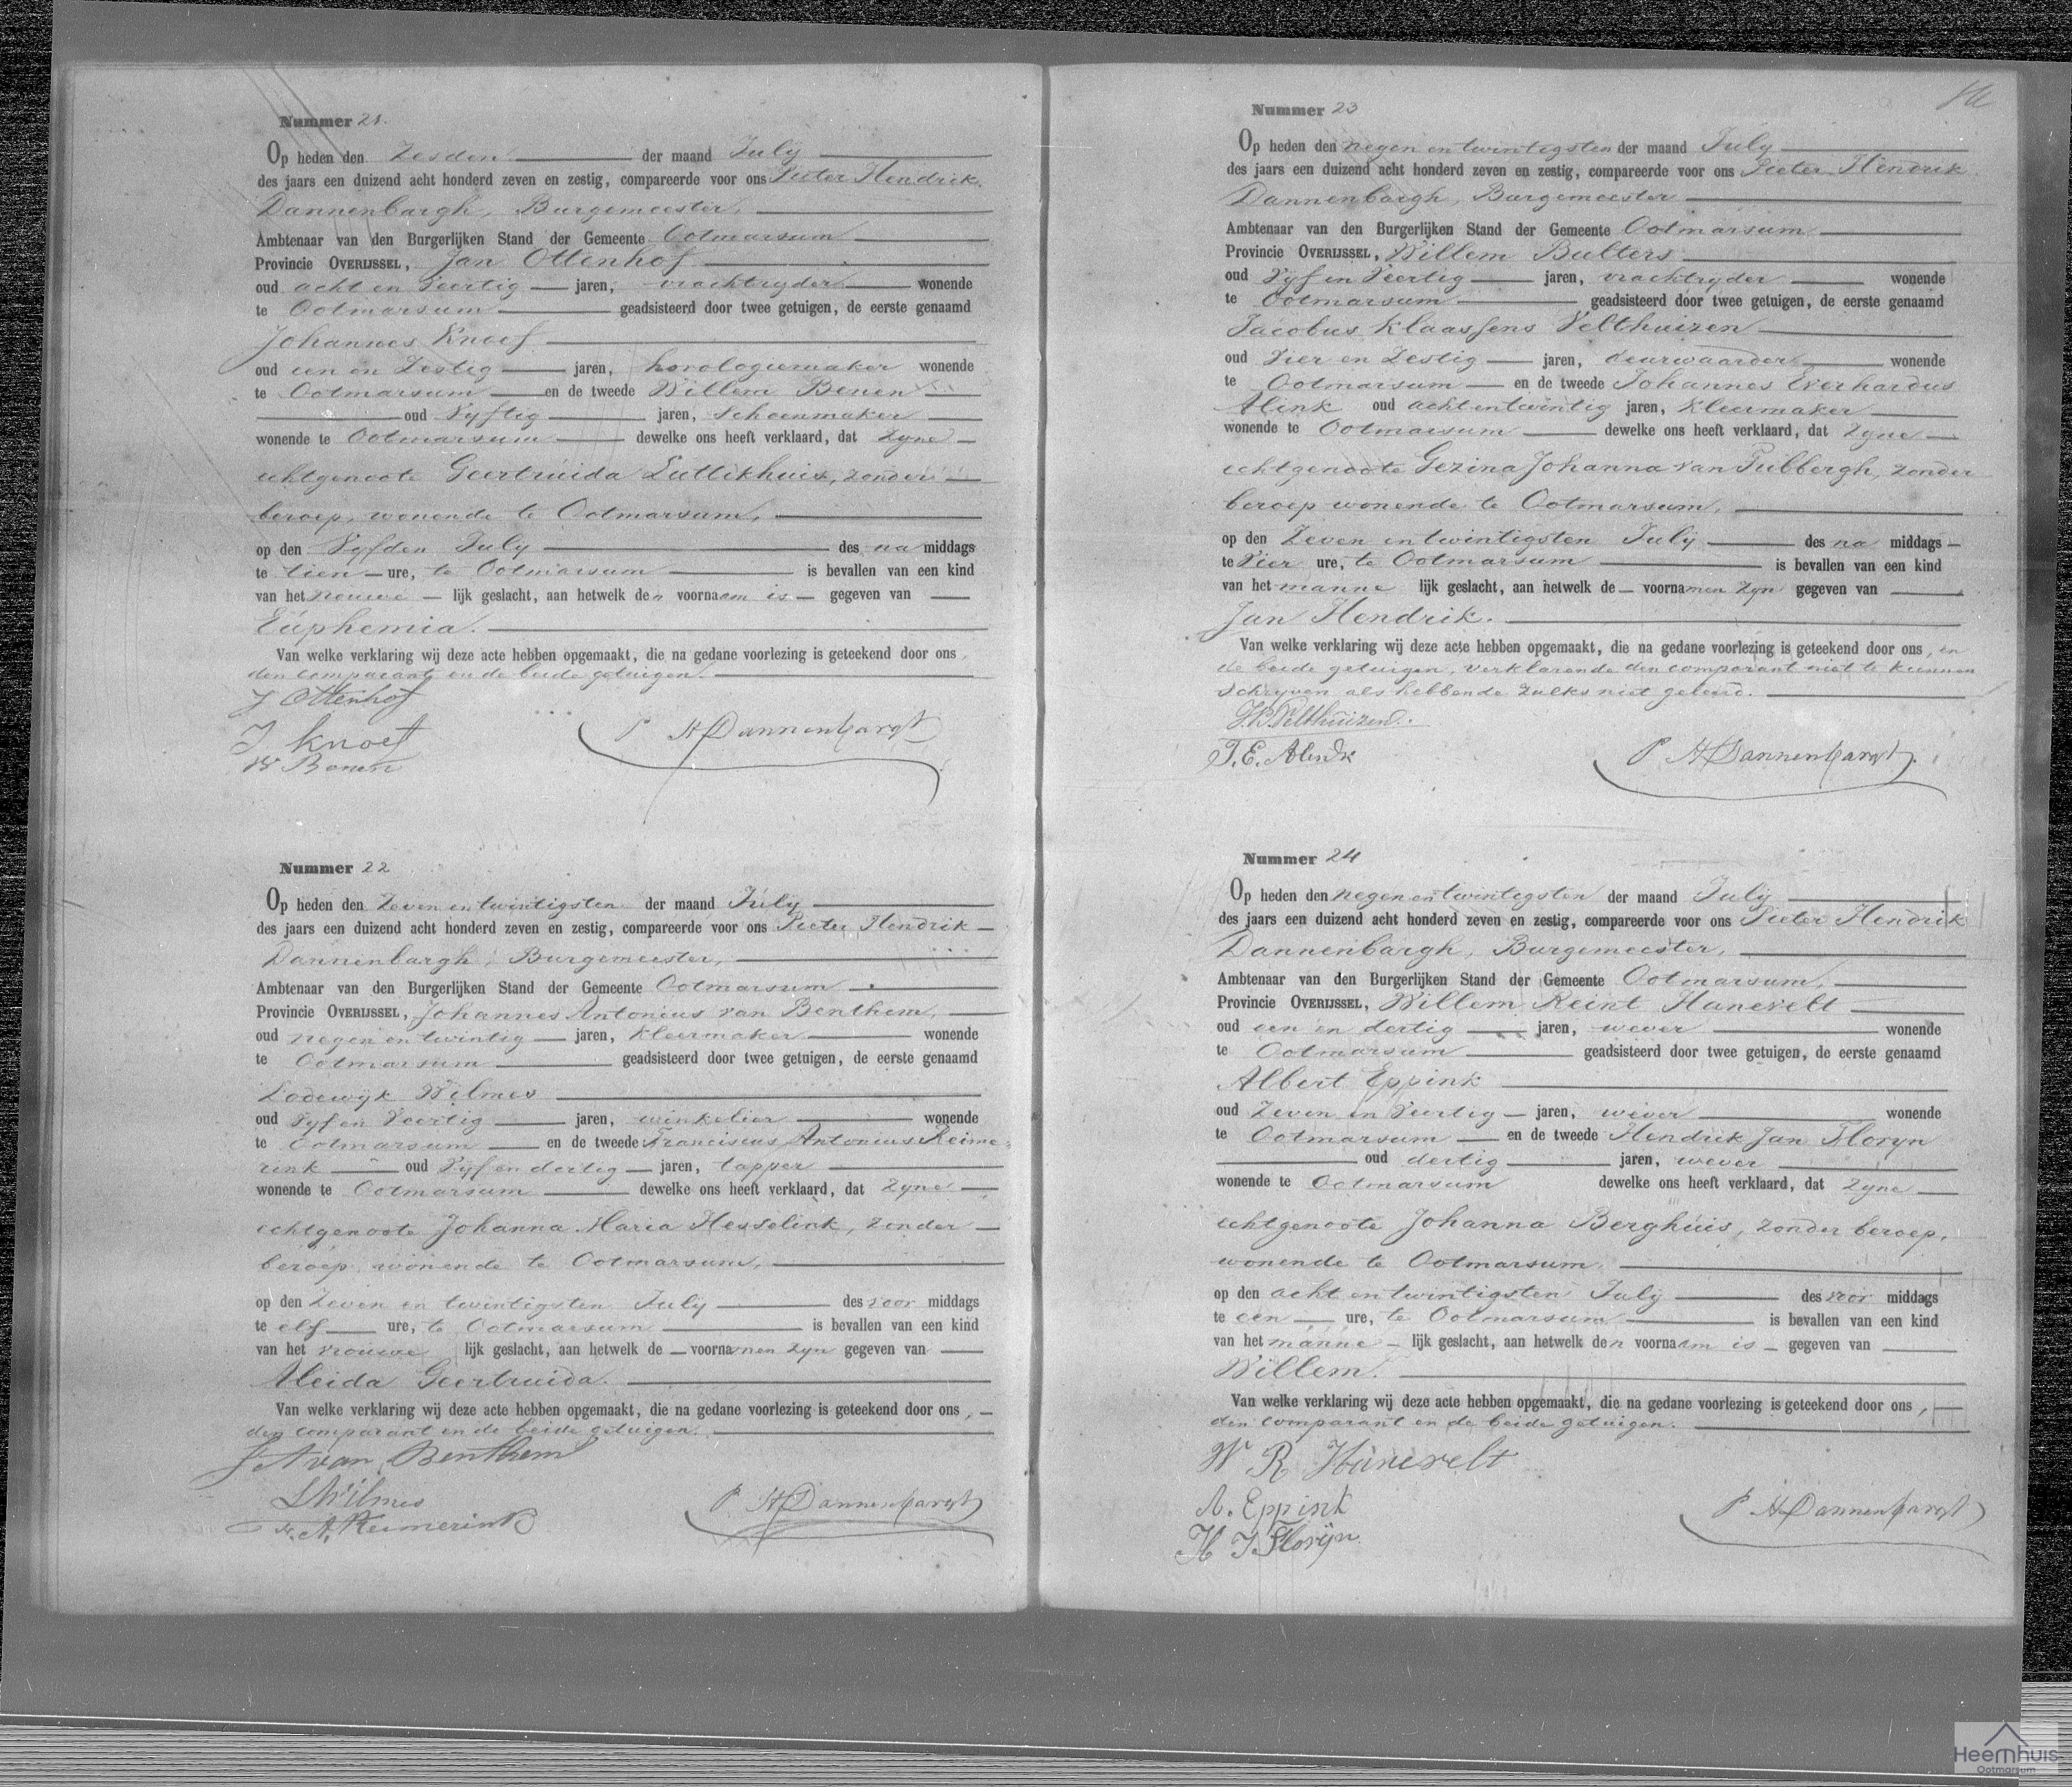 Nummer 21.
Op heden den Zesden der maand July
des jaars een duizend acht honderd zeven en zestig, compareerde voor ons Pieter Hendrik
Dannenbargh, Burgemeester,
Ambtenaar van den Burgerlijken Stand der Gemeente Ootmarsum
Provincie OVERIJSSEL, Jan Ottenhof
oud acht en Veertig jaren, vrachtryder wonende
te Ootmarsum geadsisteerd door twee getuigen, de eerste genaamd
Johannes Knoef
oud een en Zestig jaren, horologiemaker wonende
te Ootmarsum en de tweede Willem Benen
oud Vyftig jaren, Schoenmaker
wonende te Ootmarsum dewelke ons heeft verklaard, dat Zyne
echtgenoote Geertruida Luttikhuis, zonder
beroep, wonende te Ootmarsum,
op den Vyfden July des na middags
te tien ure, te Ootmarsum is bevallen van een kind
van het vrouwe lijk geslacht, aan hetwelk den voornaam is gegeven van
Euphemia.
Van welke verklaring wij deze acte hebben opgemaakt, die na gedane voorlezing is geteekend door ons,
den comparant en de beide getuigen.
J Ottenhof
J Knoef
W Benen
P H Dannenbargh
Nummer 22
Op heden den Zeven en twintigsten der maand July
des jaars een duizend acht honderd zeven en zestig, compareerde voor ons Pieter Hendrik
Dannenbargh, Burgemeester,
Ambtenaar van den Burgerlijken Stand der Gemeente Ootmarsum
Provincie OVERIJSSEL, Johannes Antonius van Benthem,
oud negen en twintig jaren, Kleermaker wonende
te Ootmarsum geadsisteerd door twee getuigen, de eerste genaamd
Lodewyk Wilmes
oud Vyf en Veertig jaren, winkelier wonende
te Ootmarsum en de tweede Franciscus Antonius Reime
rink oud Vyf en dertig jaren, tapper
wonende te Ootmarsum dewelke ons heeft verklaard, dat Zyne
echtgenoote Johanna Maria Hesselink, zonder
beroep wonende te Ootmarsum,
op den Zeven en twintigsten July des voor middags
te elf ure, te Ootmarsum is bevallen van een kind
van het vrouwe lijk geslacht, aan hetwelk de voornamen zyn gegeven van
Aleida Geertruida.
Van welke verklaring wij deze acte hebben opgemaakt, die na gedane voorlezing is geteekend door ons,
den comparant en de beide getuigen.
J A van Benthem
L Wilmes
F. A. Reimerink
P H Dannenbargh
Nummer 23
Op heden den negen en twintigsten der maand July
des jaars een duizend acht honderd zeven en zestig, compareerde voor ons Pieter Hendrik
Dannenbargh, Burgemeester
Ambtenaar van den Burgerlijken Stand der Gemeente Ootmarsum
Provincie OVERIJSSEL, Willem Bulters
oud Vyf en Veertig jaren, vrachtryder wonende
te Ootmarsum geadsisteerd door twee getuigen, de eerste genaamd
Jacobus Klaassens Velthuizen
oud Vier en Zestig jaren, deurwaarder wonende
te Ootmarsum en de tweede Johannes Everhardus
Alink oud acht en twintig jaren, Kleermaker
wonende te Ootmarsum dewelke ons heeft verklaard, dat Zyne
echtgenoote Gezina Johanna van Tubbergh, zonder
beroep wonende te Ootmarsum,
op den Zeven en twintigsten July des na middags
te Vier ure, te Ootmarsum is bevallen van een kind
van het manne lijk geslacht, aan hetwelk de voornamen zyn gegeven van
Jan Hendrik.
Van welke verklaring wij deze acte hebben opgemaakt, die na gedane voorlezing is geteekend door ons, en
de beide getuigen, verklarende den comparant niet te kunnen
schryven als hebbende zulks niet geleerd.
Velthuizen
J. E. Alink
P H Dannenbargh
Nummer 24
Op heden den negen en twintigsten der maand July
des jaars een duizend acht honderd zeven en zestig, compareerde voor ons Pieter Hendrik
Dannenbargh, Burgemeester,
Ambtenaar van den Burgerlijken Stand der Gemeente Ootmarsum,
Provincie OVERIJSSEL, Willem Reint Hunevelt
oud een en dertig jaren, wever wonende
te Ootmarsum geadsisteerd door twee getuigen, de eerste genaamd
Albert Eppink
oud Zeven en Veertig jaren, wever wonende
te Ootmarsum en de tweede Hendrik Jan Floryn
oud dertig jaren, wever
wonende te Ootmarsum dewelke ons heeft verklaard, dat Zyne
echtgenoote Johanna Berghuis, zonder beroep,
wonende te Ootmarsum,
op den acht en twintigsten July des voor middags
te een ure, te Ootmarsum is bevallen van een kind
van het manne lijk geslacht, aan hetwelk den voornaam is gegeven van
Willem.
Van welke verklaring wij deze acte hebben opgemaakt, die na gedane voorlezing is geteekend door ons,
den comparant en de beide getuigen.
W R Hunevelt
A. Eppink
H J Floryn
P H Dannenbargh
Heemhuis
Ootmarsum